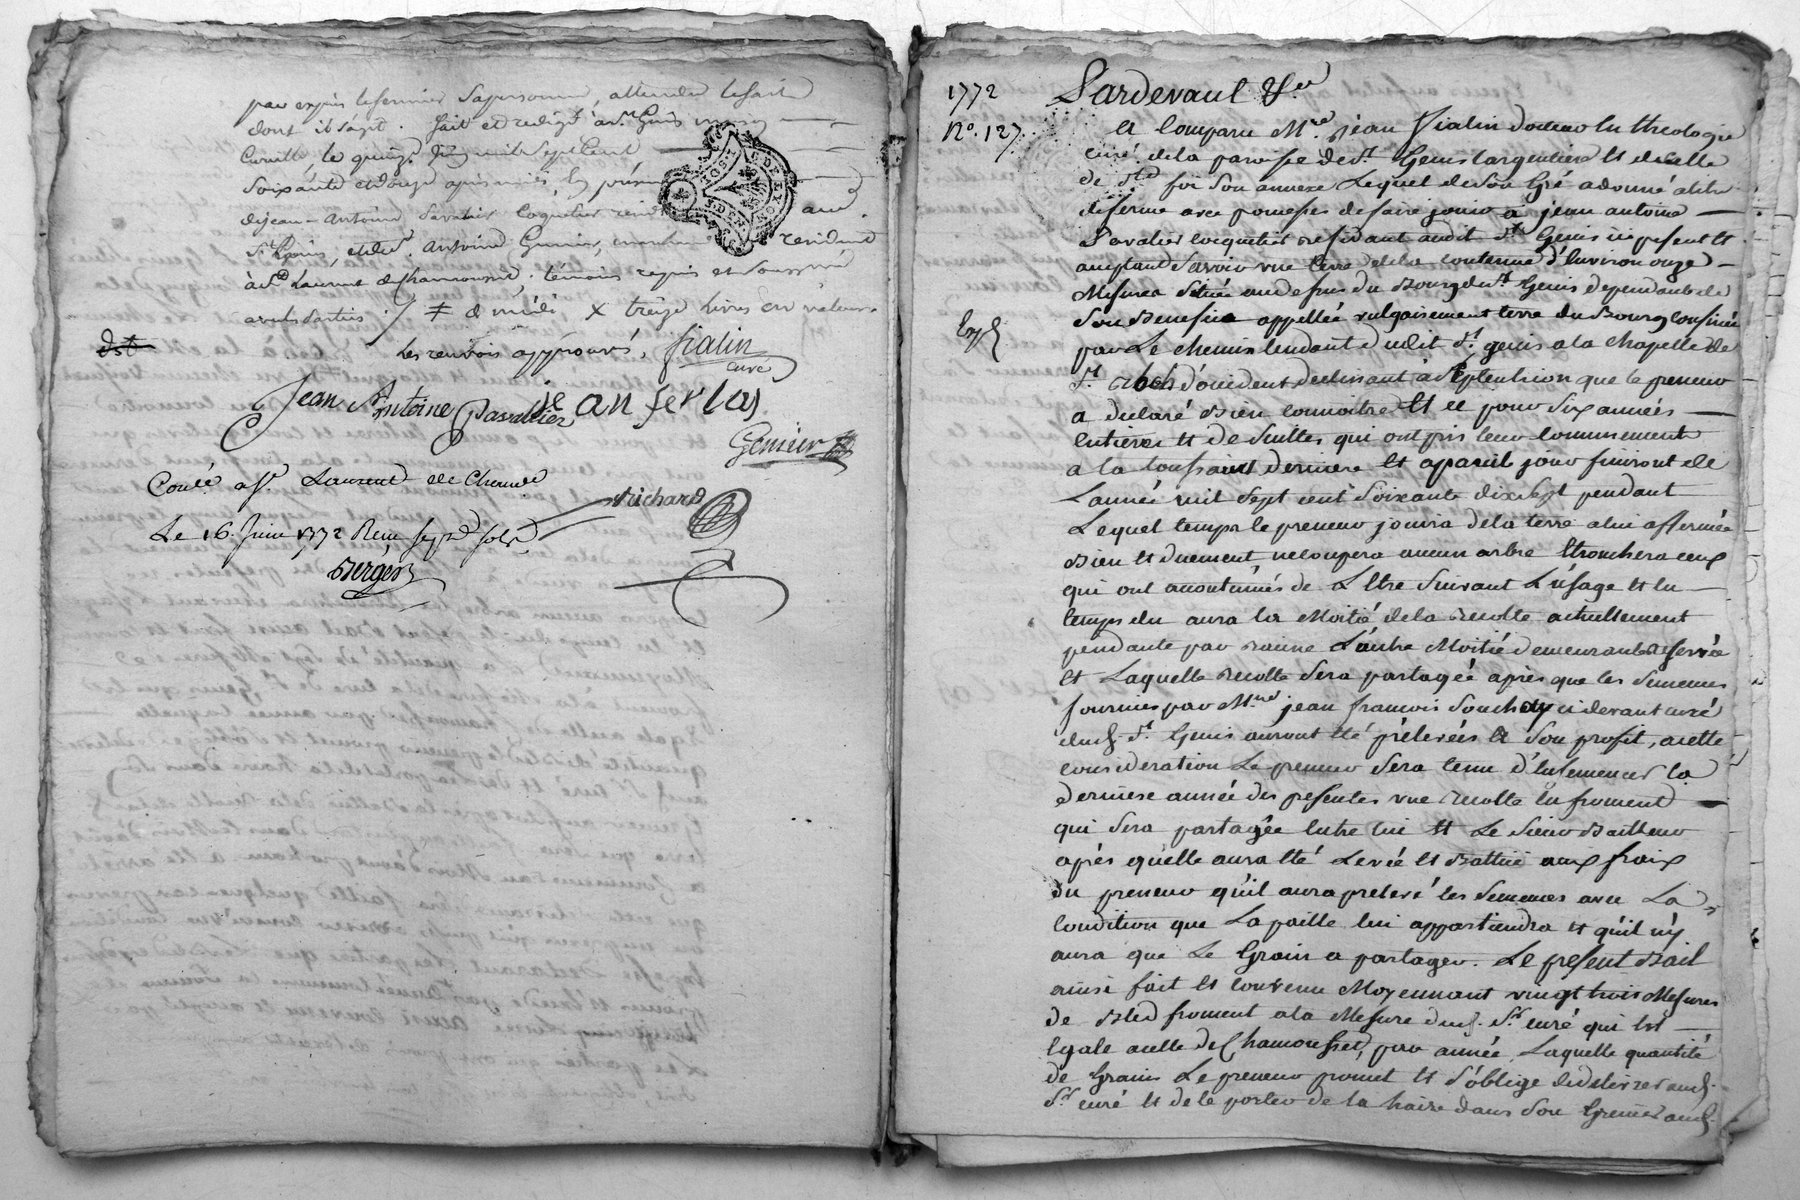 par exprès
dont il s'agit. fait et redigé à St Genis
Curialle, le quinze Juin mil sept cent
soixante et douze après midi, En présence
de jean-Antoine Savatier loquetier resid
St Genis, et de Sr. Antoine Genier, marchand residant
à St Laurent de Chamousset, témoins requis et Soussignés
avec les parties ./. ≠ de midi x treize livres en valeur
Les renvois approuvés, fialin
curé
Jean Antoine Pavallier Jean ferlay
Genier
Con.lé a St. Laurent de Cham.et
Le 16. Juin 1772 Reçu sept sols
Richard
Berger
1772
No. 127.
Pardevant &a.
Et Comparu Mre. jean fialin docteur En theologie
curé de la paroisse de St. Genis largentiere Et de celle
de Ste foi Son annexe Lequel de Son Gré a donné a titre
de ferme avec promesses de faire jouir à jean antoine
Pavalier loquetier residant audit St. Genis ici present Et
acceptant Savoir une terre de la contenue d'Environ onze
Mesures Située au dessus du Bourg de St. Genis dependante de
Son Benefice appellée vulgairement terre du Bourg confinée
Exp.é
par Le chemin tendant dudit St. genis a la chapelle de
St. Roch d'occident declinant à Septentrion que le preneur
a declaré Bien connoitre Et ce pour Six années
Entieres Et de Suittes qui ont pris leur Commencement
a la toussaint derniere Et a pareil jour finiront de
L'année mil Sept cent Soixante dix Sept pendant
Lequel temps le preneur jouira de la terre a lui affermée
Bien Et duement, ne coupera aucun arbre Etronchera ceux
qui ont accoutumés de L'Etre Suivant L'usage Et En
temps du aura la Moitié de la recolte actuellement
pendante par racine L'autre Moitié demeurant reservée
Et Laquelle recolte Sera partagée après que les Semences
fournies par Mre. jean francois Souchay ci devant curé
dud. St. Genis auront Eté prélevées à Son profit, a cette
consideration Le preneur Sera tenu d'Ensemencer la
derniere année des presentes une recolte En froment
qui Sera partagée Entre lui Et Le Sieur Bailleur
après qu'elle aura Eté Levée Et Battüe aux fraix
du preneur qu'il aura prelevé les Semences avec La
condition que La paille lui appartiendra Et qu'il n'y
aura que Le Grain a partager. Le present Bail
ainsi fait Et convenu Moyennant vingt trois Mesures
de Bled froment a la Mesure dud. Sr. curé qui Est
Egale a celle de Chamousset, par année, Laquelle quantité
de Grains Le preneur promet Et S'oblige de delivrer aud.
Sr. curé Et de le porter de la haire dans Son Grenier aud.